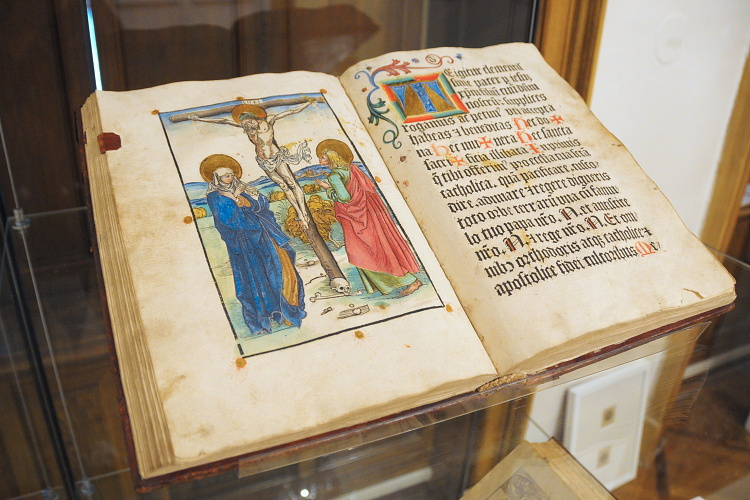 TEigitur clemetis
sime pater p iesu
xpm filiu tuu dnm
nostru: supplices
rogamus ⁊ petim9 uti accepta
habeas ⁊ benedicas Hec do✠
na Hec mu✠nera Hec sancta
sacri✠ficia illibata In primis
q̃ tibi offerim9 p ecclesia
catholica. quã pacificare, custo
dire, adunare ⁊ regere digneris
toto orbe terrarũ una cũ famu
lo tuo papa nr̃o. N. et antistite
nr̃o. N. ⁊ rege nr̃o. N. Et om
nibꝫ orthodoxis atqꝫ catholice ⁊
apostolice fidei cultoribus. Me